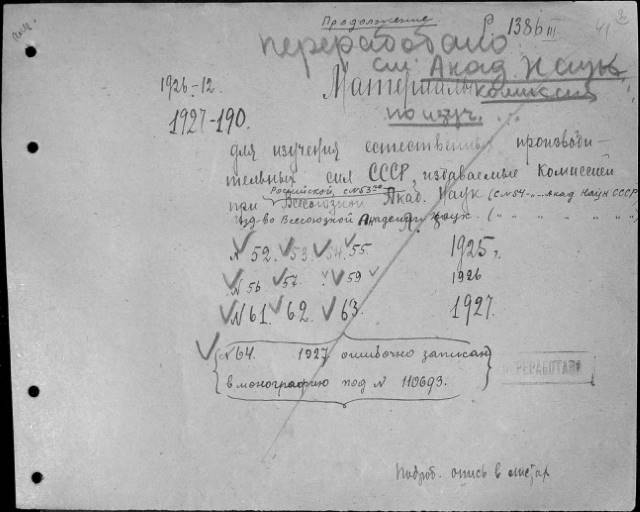 Продолжение
Р 1386 III
переработано
см. Акад. Наук
1926-12.
Материалы комиссии
1927-190.
по изуч. ...
для изучения естественных производи-
тельных сил СССР, издаваемые Комиссией
Российской, с № 53
при Всесоюзной Акад. Наук (с № 54-„... Акад Наук СССР
Изд-во Всесоюзной Академии Наук (" " " " " "
№ 52. 53. 54. 55. 1925 г.
№ 56 57. 59 1926
№ 61. 62. 63. 1927.
№ 64. 1927 ошибочно записан
в монографию под № 110693.
ПЕРЕРАБОТАН
Подроб. опись в листах